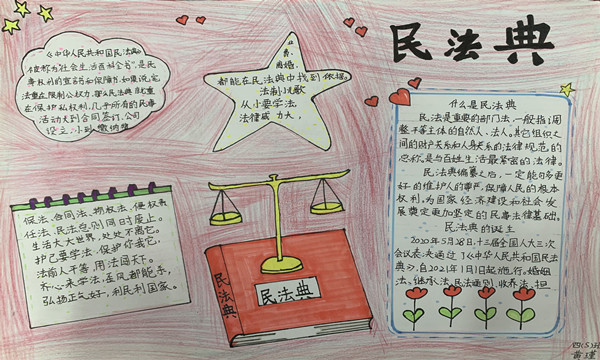 民法典
《中华人民共和国民法典》
被称为"社会生活百科全书",是民
事权利的宣言书和保障书,如果说,宪
法重在限制公权力,那么民法典就重
在保护私权利,几乎所有的民事
活动大到合同签订、公司
设立,小到缴纳物
业
费、
离婚,
都能在民法典中找到依据。
法制儿歌
从小要学法,
法律威力大,
什么是民法典
民法是重要的部门法,一般指调
整平等主体的自然人、法人、其它组织之
间的财产关系和人身关系的法律规范的
总称,是与百姓生活最紧密的法律。
民法典编纂之后,一定能够多更
好的维护人的尊严,保障人民的根本
权利,为国家经济建设和社会发
展奠定更加坚定的民事法律基础。
民法典的诞生
2020年5月28日,十三届全国人大三次
会议表决通过了《中华人民共和国民法
典》,自2021年1月1日起施行。婚姻
法、继承法、民法通则、收养法、担
保法、合同法、物权法、侵权责
任法、民法总则同时废止。
生活大大世界,处处不离它。
护己要学法,保护你我它,
法偷人千答,用法闯天下。
齐心来学法,
弘扬正气好,利民利国家。
民法典
民法典
四(5)班